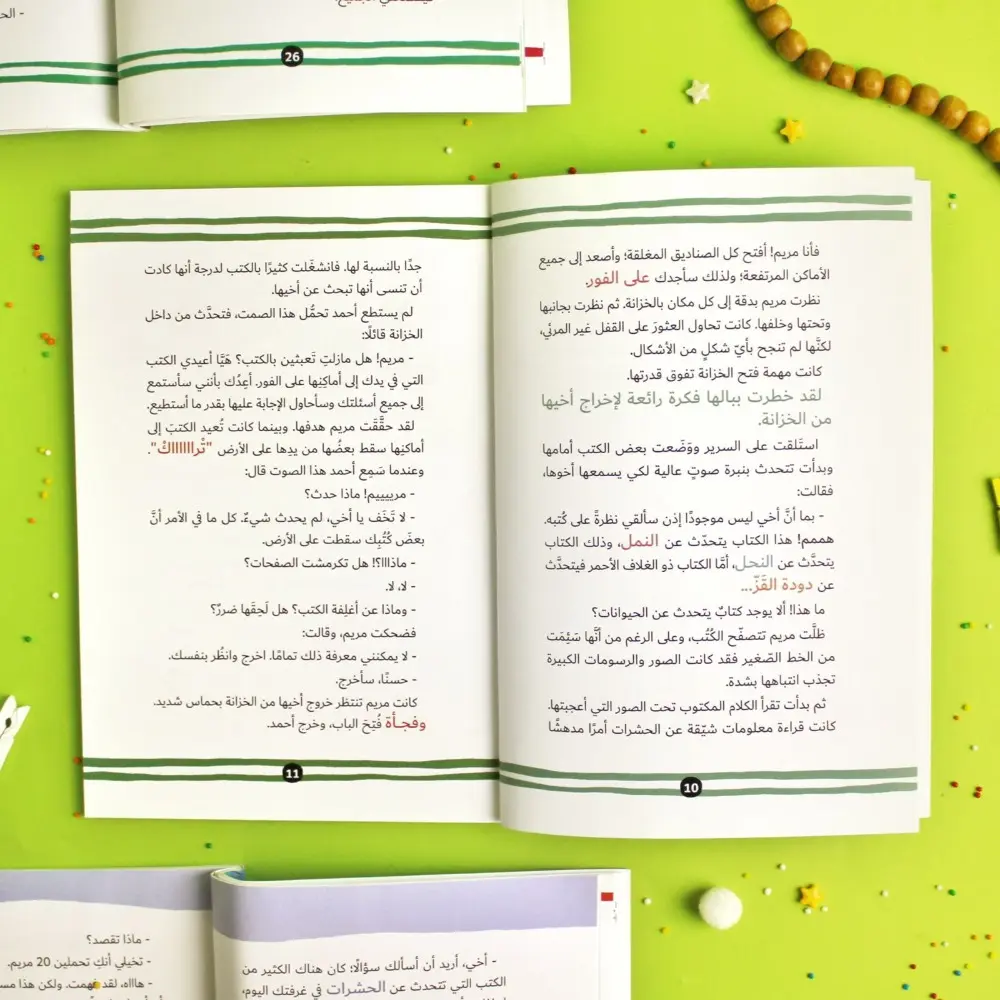 26
فأنا مريم! أفتح كل الصناديق المغلقة؛ وأصعد إلى جميع
الأماكن المرتفعة؛ ولذلك سأجدك على الفور.
نظرت مريم بدقة إلى كل مكان بالخزانة. ثم نظرت بجانبها
وتحتها وخلفها. كانت تحاول العثورَ على القفل غير المرئي،
لكنَّها لم تنجح بأيّ شكلٍ من الأشكال.
كانت مهمة فتح الخزانة تفوق قدرتها.
لقد خطرت ببالها فكرة رائعة لإخراج أخيها
من الخزانة.
استَلقت على السرير ووَضَعت بعض الكتب أمامها
وبدأت تتحدث بنبرة صوتٍ عالية لكي يسمعها أخوها،
فقالت:
- بما أنَّ أخي ليس موجودًا إذن سألقي نظرةً على كُتبه.
هممم! هذا الكتاب يتحدّث عن النمل، وذلك الكتاب
يتحدَّث عن النحل، أمَّا الكتاب ذو الغلاف الأحمر فيتحدَّث
عن دودة القَزّ...
ما هذا! ألا يوجد كتابٌ يتحدث عن الحيوانات؟
ظلَّت مريم تتصفّح الكُتُب، وعلى الرغم من أنَّها سَئِمَت
من الخط الصّغير فقد كانت الصور والرسومات الكبيرة
تجذب انتباهها بشدة.
ثم بدأت تقرأ الكلام المكتوب تحت الصور التي أعجبتها.
كانت قراءة معلومات شيّقة عن الحشرات أمرًا مدهشًا
10
جدًا بالنسبة لها. فانشغَلت كثيرًا بالكتب لدرجة أنها كادت
أن تنسى أنها تبحث عن أخيها.
لم يستطع أحمد تحمُّل هذا الصمت، فتحدَّث من داخل
الخزانة قائلًا:
- مريم! هل مازلتِ تَعبثين بالكتب؟ هَيَّا أعيدي الكتب
التي في يدك إلى أماكِنِها على الفور. أعِدُك بأنني سأستمع
إلى جميع أسئلتك وسأحاول الإجابة عليها بقدر ما أستطيع.
لقد حقَّقَت مريم هدفها. وبينما كانت تُعيد الكتبَ إلى
أماكنِها سقط بعضُها من يدِها على الأرض "تْراااااااكْ".
وعندما سَمِع أحمد هذا الصوت قال:
- مرييييم! ماذا حدث؟
- لا تَخَف يا أخي، لم يحدث شيءٌ. كل ما في الأمر أنَّ
بعضَ كُتُبِك سقطت على الأرض.
- ماذااا؟! هل تكرمشت الصفحات؟
- لا، لا.
- وماذا عن أغلِفة الكتب؟ هل لَحِقَها ضررٌ؟
فضحكت مريم، وقالت:
- لا يمكنني معرفة ذلك تمامًا. اخرج وانظُر بنفسك.
- حسنًا، سأخرج.
كانت مريم تنتظر خروج أخيها من الخزانة بحماس شديد.
وفجـأة فُتِحَ الباب، وخرج أحمد.
11
- أخي، أريد أن أسألك سؤالًا؛ كان هناك الكثير من
الكتب التي تتحدث عن الحشرات في غرفتك اليوم،
- ماذا تقصد؟
- تخيلي أنكِ تحملين 20 مريم.
- هاااه، لقد فهمت. ولكن هذا